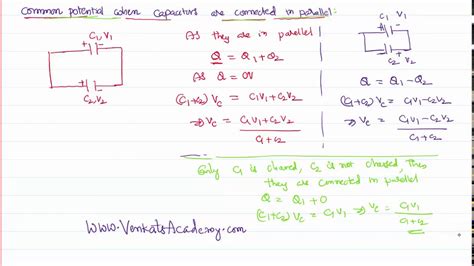 Common potential when Capacitors are connected in parallel:
C₁, V₁
C₂, V₂
As they are in parallel
Q = Q₁+Q₂
As Q = CV
(C₁+C₂) V_C = C₁V₁+C₂V₂
⇒ V_C = (C₁V₁+C₂V₂)/(C₁+C₂)
C₁ V₁
C₂ V₂
Q = Q₁-Q₂
(C₁+C₂) V_C = C₁V₁-C₂V₂
⇒ V_C = (C₁V₁-C₂V₂)/(C₁+C₂)
Only C₁ is charged, C₂ is not charged, Then
they are connected in parallel
Q = Q₁+0
(C₁+C₂) V_C = C₁V₁ ⇒ V_C = C₁V₁/(C₁+C₂)
www.VenkatsAcademy.com